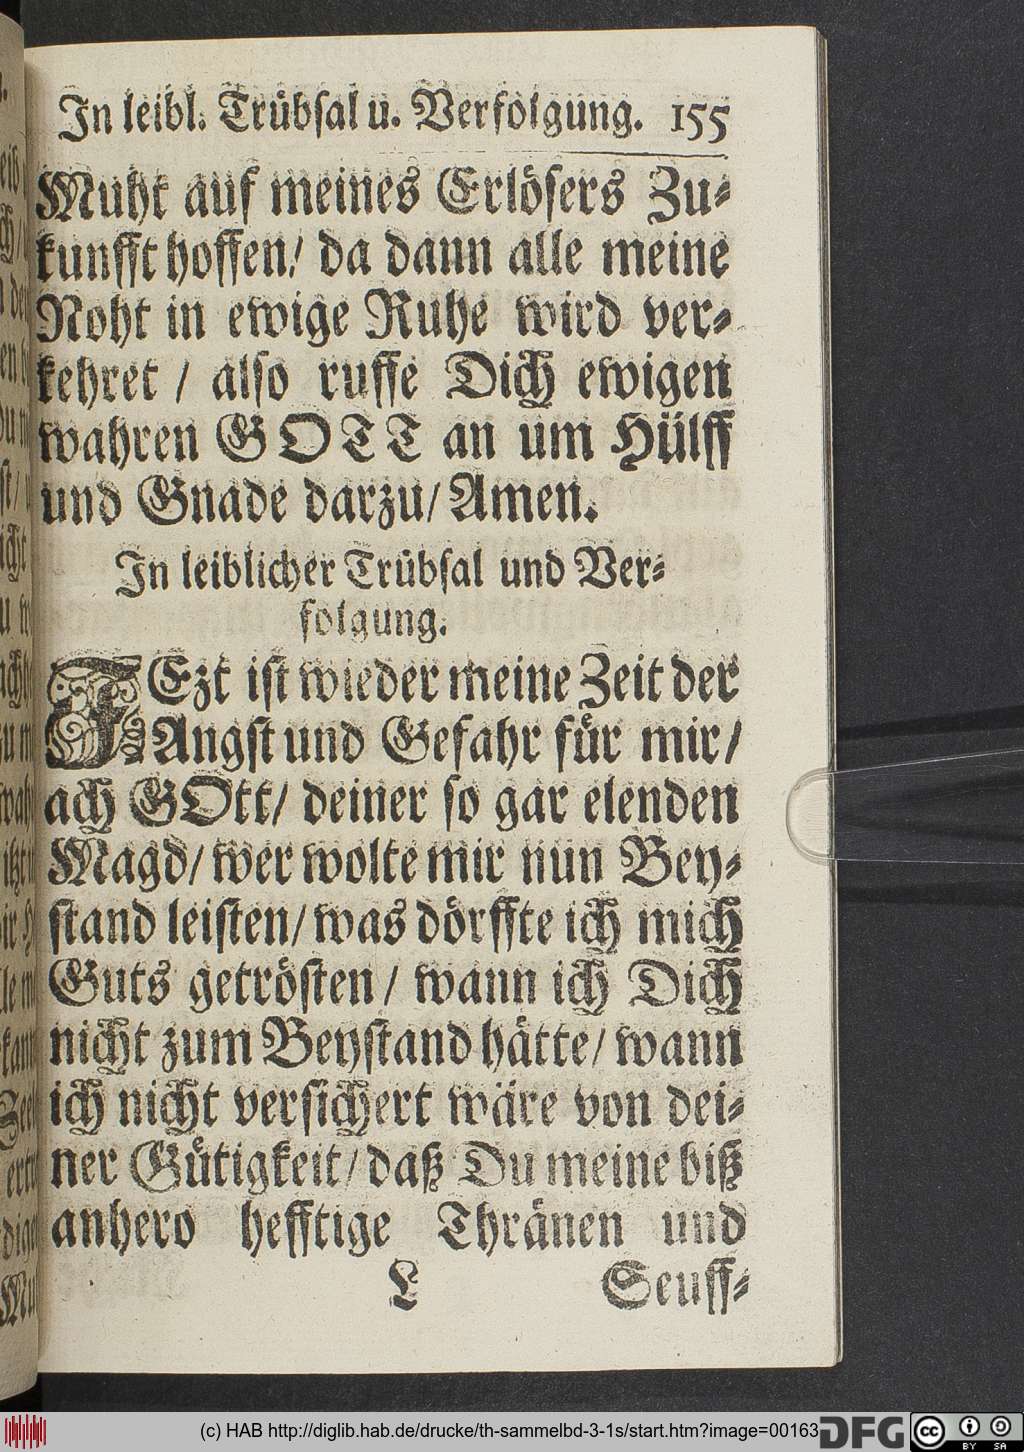 In leibl. Trübsal u. Verfolgung. 155
Muht auf meines Erlösers Zu-
kunfft hoffen/ da dann alle meine
Noht in ewige Ruhe wird ver-
kehret / also ruffe Dich ewigen
wahren GOTT an um Hülff
und Gnade darzu/ Amen.
In leiblicher Trübsal und Ver-
folgung.
JEzt ist wieder meine Zeit der
Angst und Gefahr für mir/
ach GOtt/ deiner so gar elenden
Magd/ wer wolte mir nun Bey-
stand leisten/ was dörffte ich mich
Guts getrösten / wann ich Dich
nicht zum Beystand hätte/ wann
ich nicht versichert wäre von dei-
ner Gütigkeit/ daß Du meine biß
anhero hefftige Thränen und
L Seuff-
(c) HAB http://diglib.hab.de/drucke/th-sammelbd-3-1s/start.htm?image=00163
DFG
cc BY SA